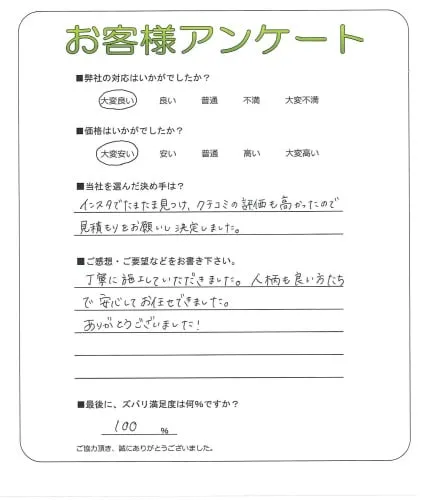 お客様アンケート
■弊社の対応はいかがでしたか？
大変良い 良い 普通 不満 大変不満
■価格はいかがでしたか？
大変安い 安い 普通 高い 大変高い
■当社を選んだ決め手は？
インスタでたまたま見つけ、クチコミの評価も高かったので
見積もりをお願いし決定しました。
■ご感想・ご要望などをお書き下さい。
丁寧に施工していただきました。人柄も良い方たち
で安心してお任せできました。
ありがとうございました！
■最後に、ズバリ満足度は何％ですか？
100 ％
ご協力頂き、誠にありがとうございました。